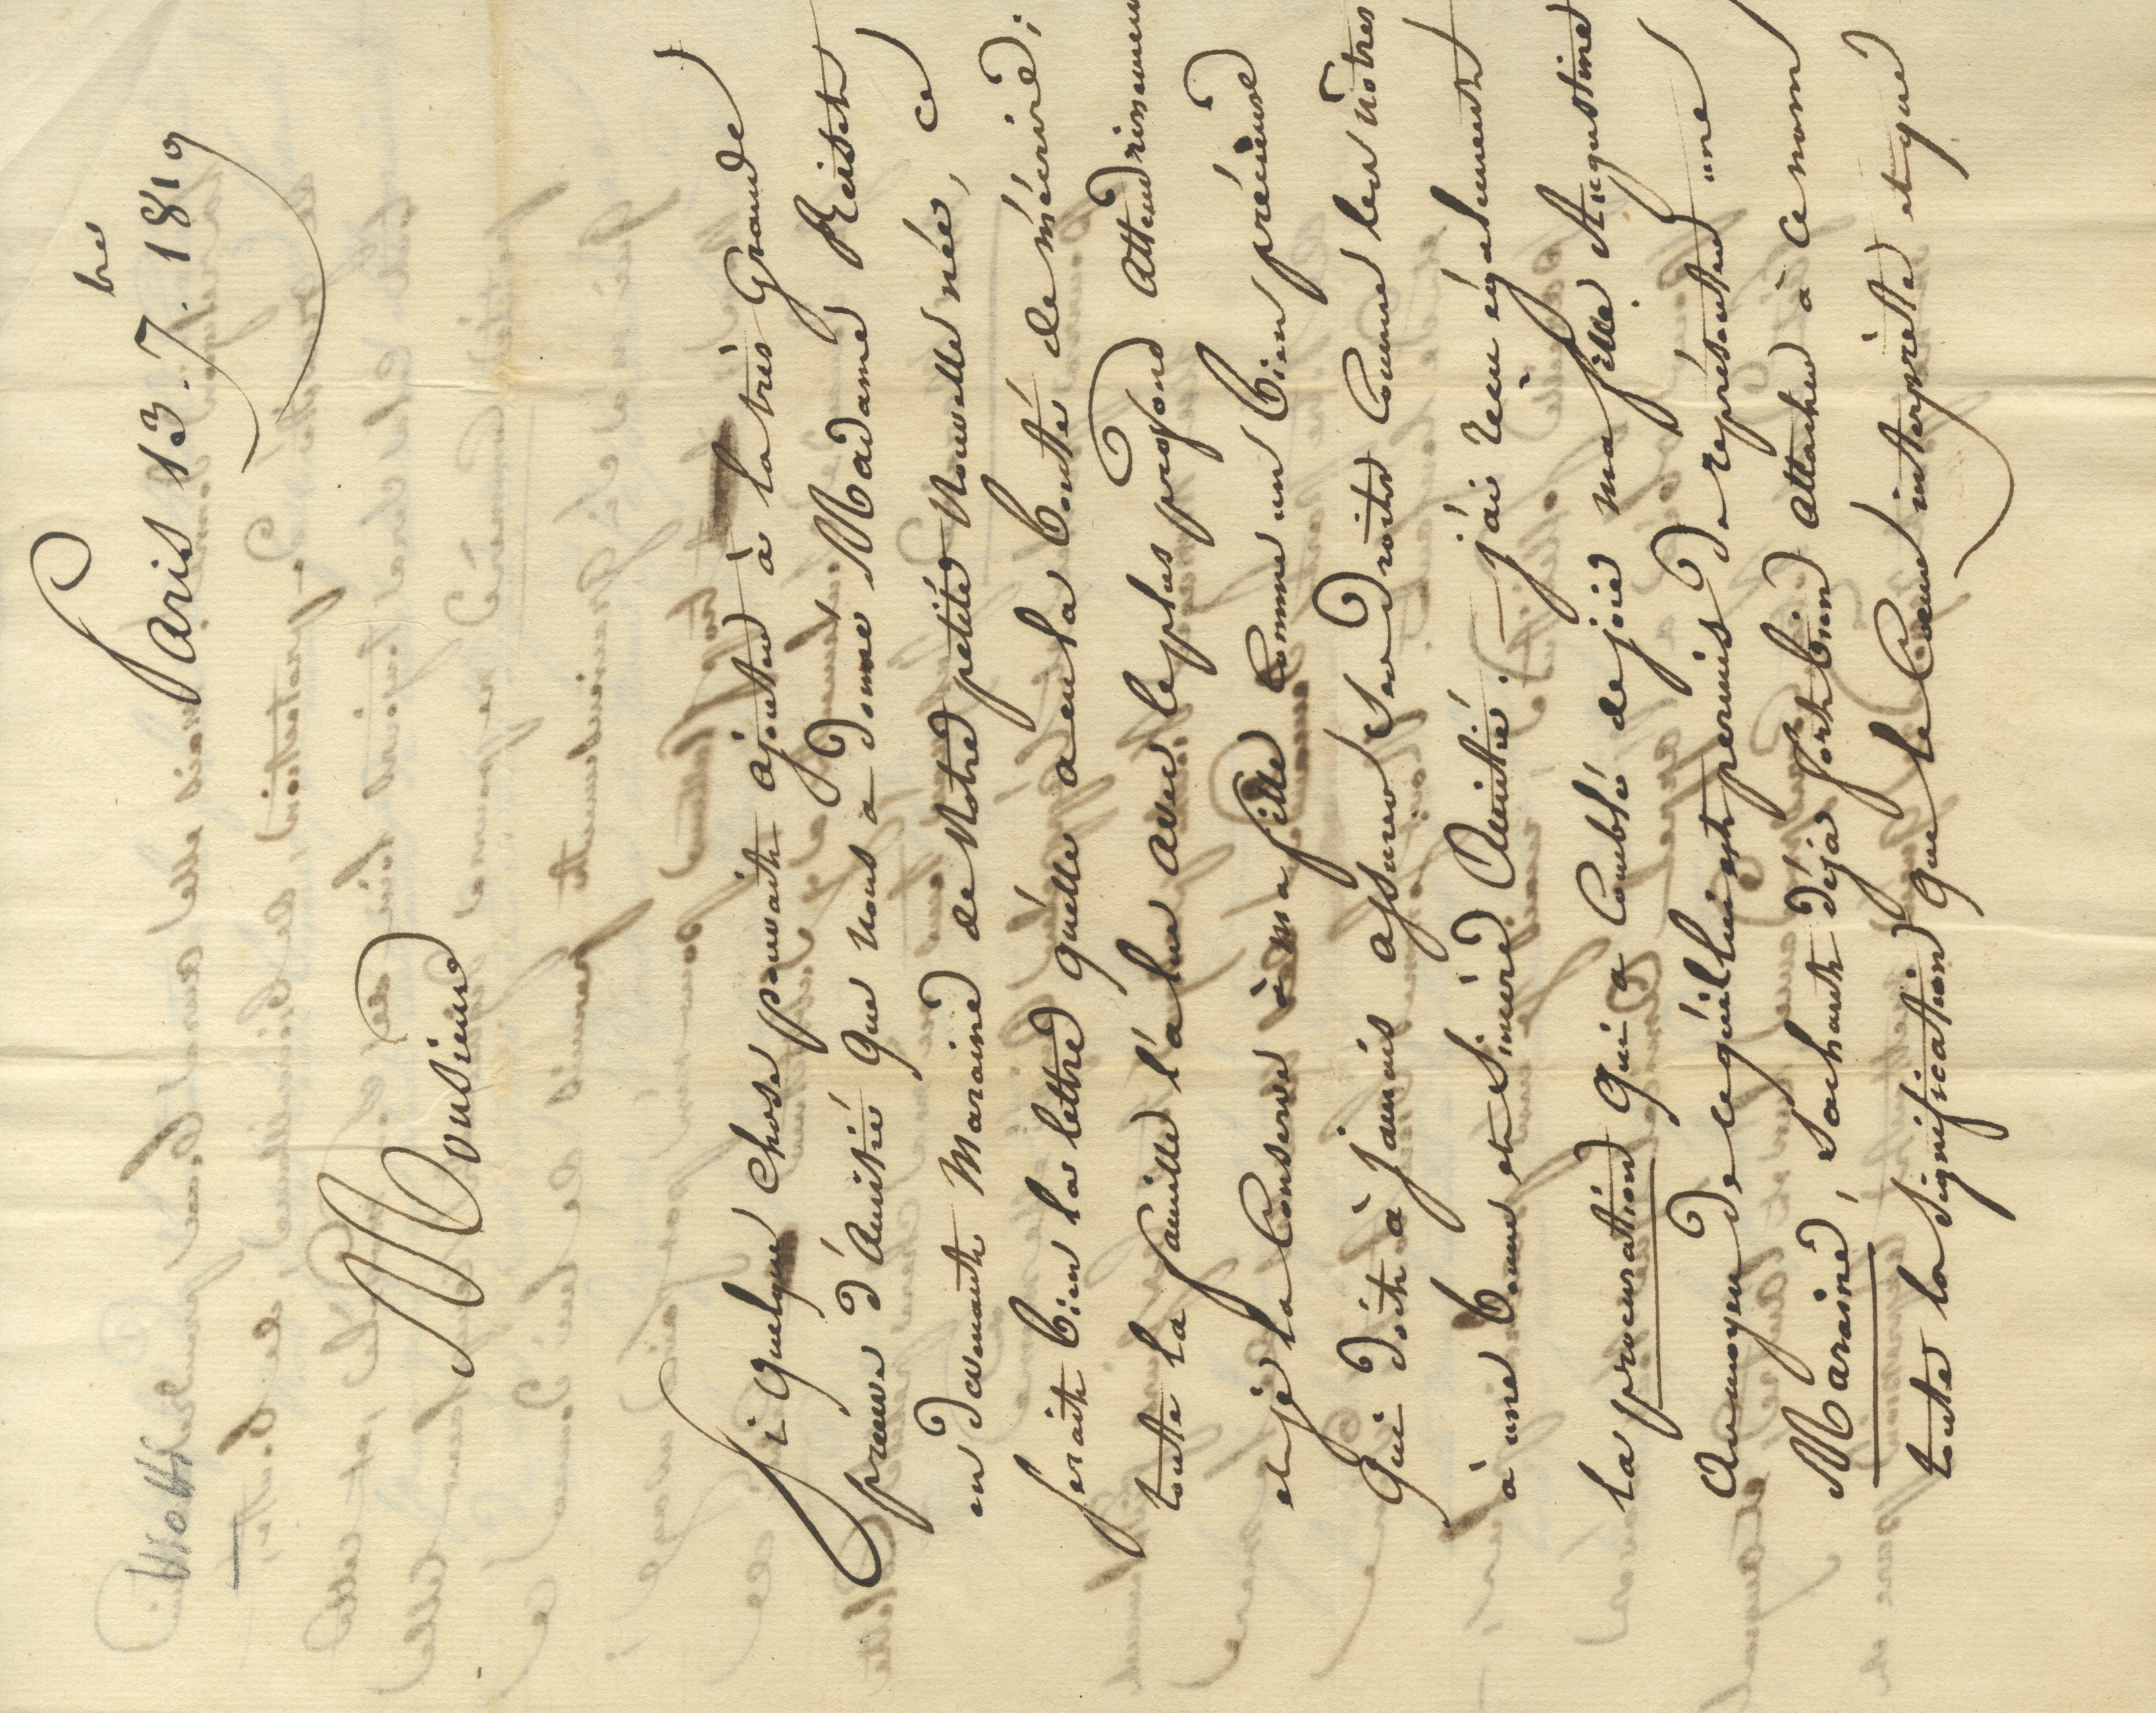 Paris 13. 7.bre 1819
Monsieur
Si quelque chose pouvait ajouter à la très grande
preuve d'Amitié que vous a donné Madame Reiset
en devenant Maraine de Notre petite Nouvelle née, ce
serait bien la lettre qu'élle a eu la bonté de m'écrire;
toutte la famille l'a lue avec le plus profond attendrissement
et je la Conserve à ma fille Comme un bien précieuse
qui doit à jamais assurer ses droits Comme les Nôtres
à une bonne et sincère Amitié. — j'ai reçu également
la procuration qui a Comblé de joie ma fille Augustine
Au moyen de ce qu'il lui est permis de représenter une
Maraine, sachant déja fort bien attacher à ce nom
toute la signification que le Coeur interprètte et que